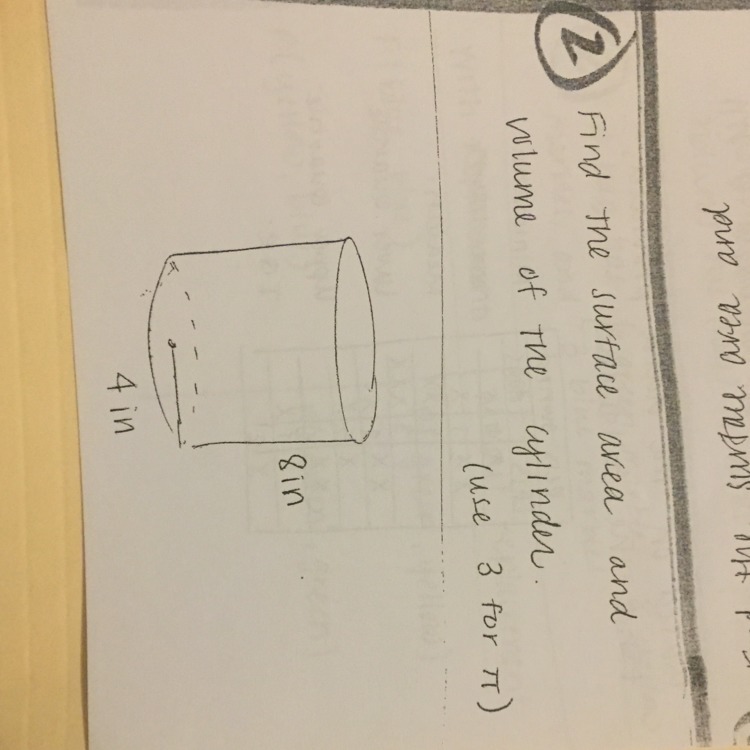 2 Find the surface area and
volume of the cylinder.
(use 3 for π)
8in
4 in
surface area and
the